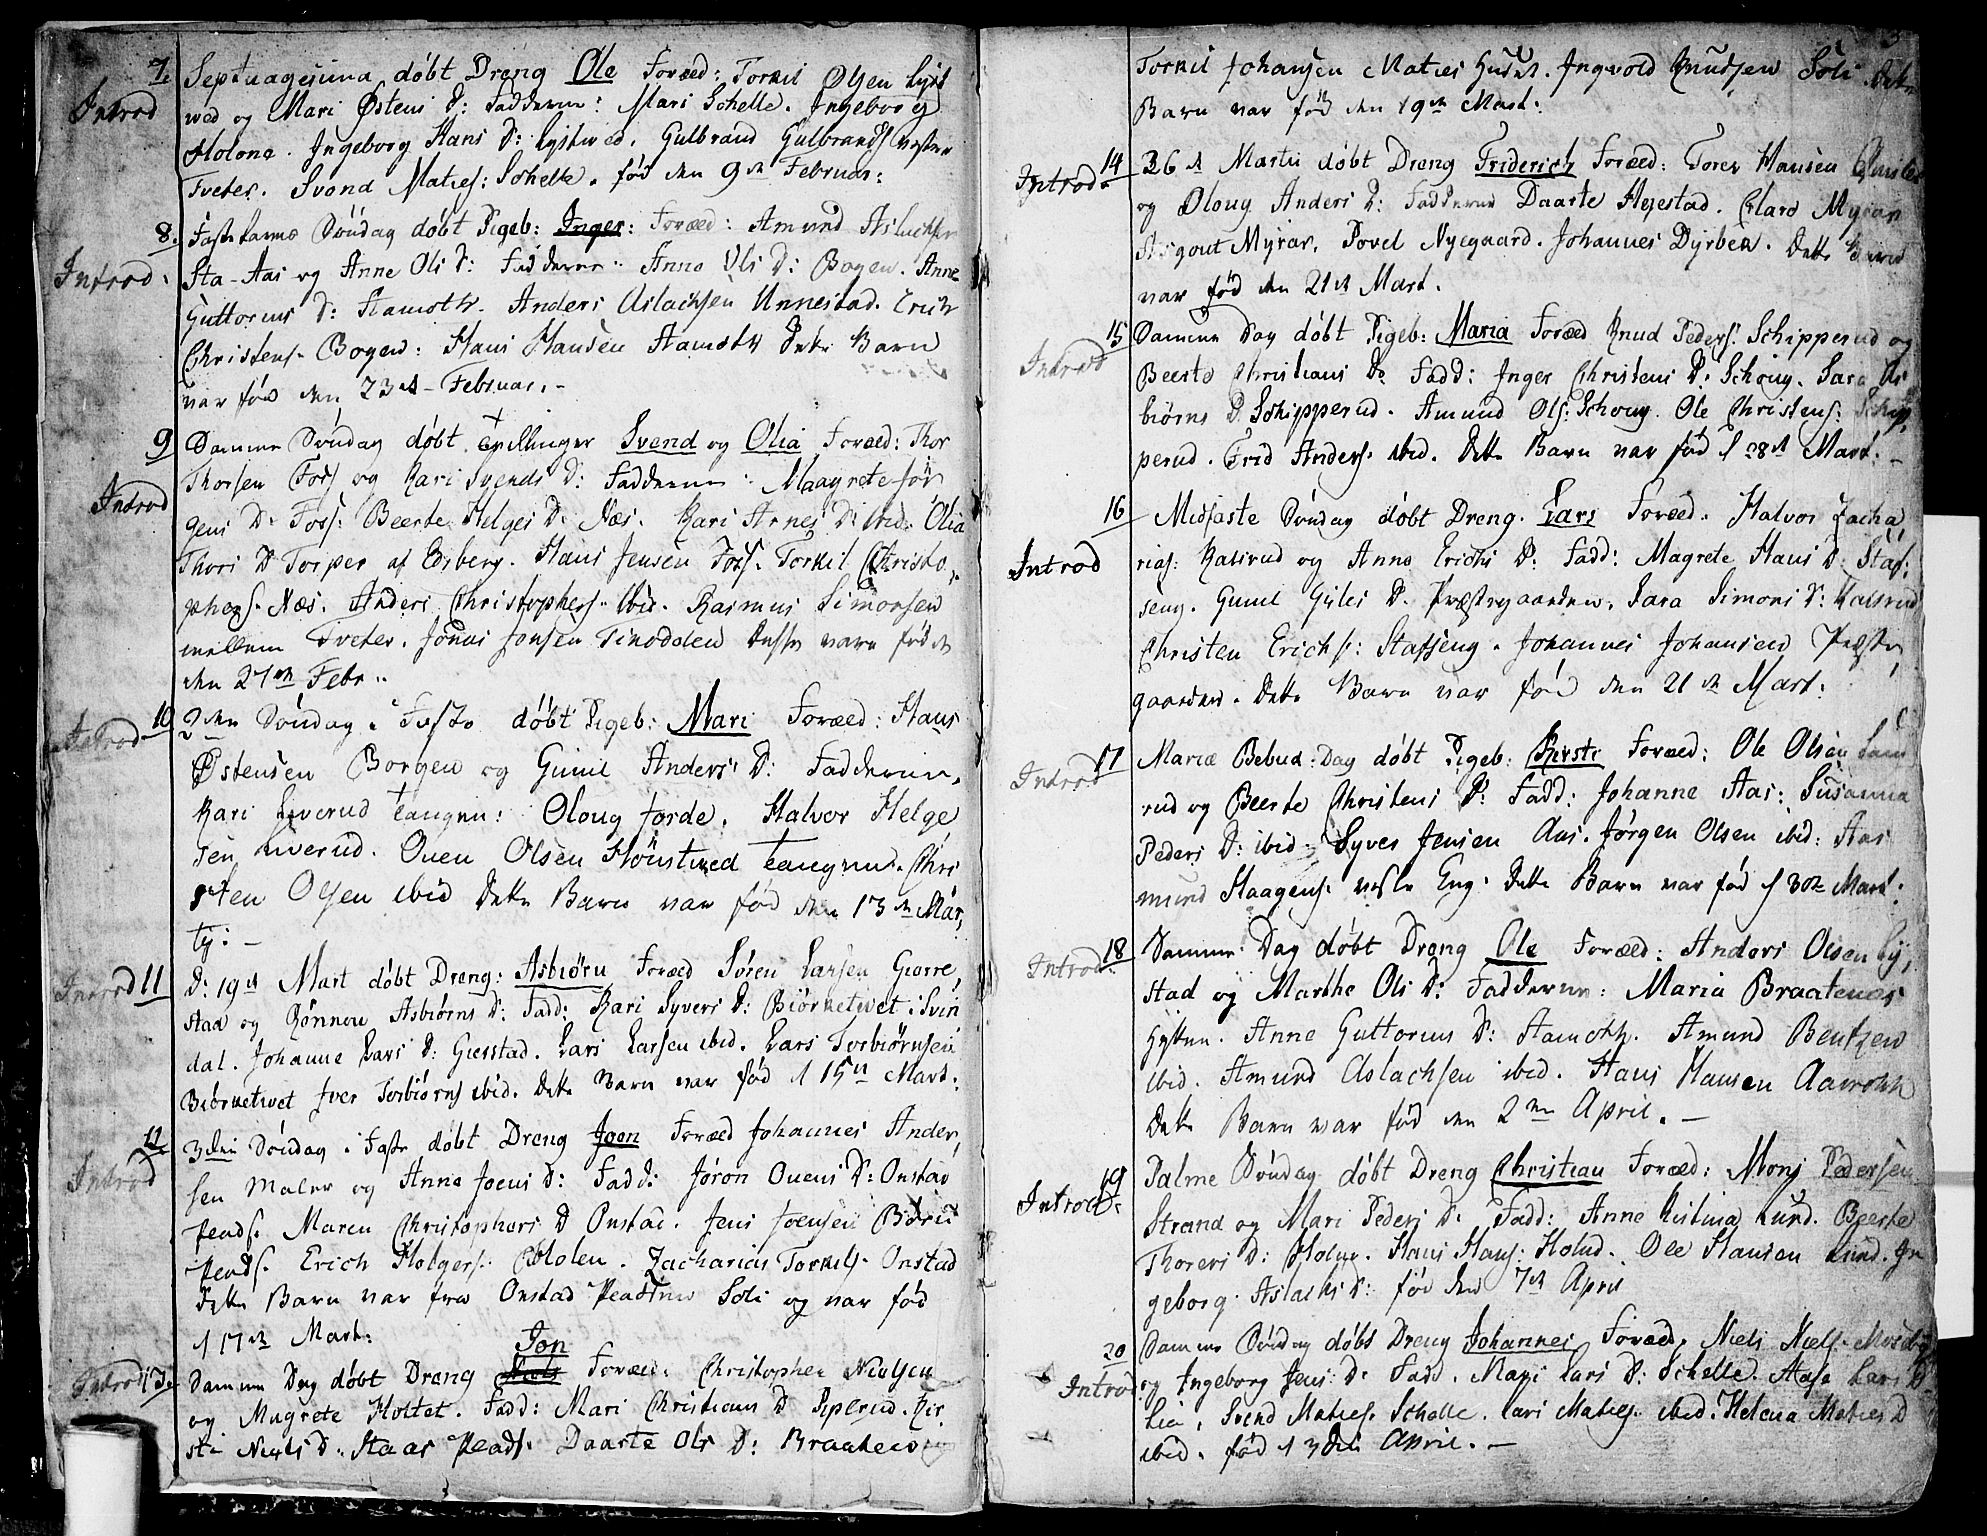 7.
Septuagesima døbt Dreng Ole Foræld: Torkil Olsen Lyst
Introd
wed og Mari Østens D: Fadderne: Mari Schelle. Ingeborg
Holone. Ingeborg Hans D: Lystwed. Gulbrand Gulbrands westre
Tveter. Svend Maties: Schelle. fød den 9de Februar:
8.
Fastelavns Søndag døbt Pigeb: Inger: Foræld: Amund Aslachsen
Introd:
Sta-Aas og Anne Ols D: Fadderne: Anne Ols D: Bogen. Anne
Guttorms D: Aamoth. Anders Aslachsen Unnestad. Erich
Christens. Bogen: Hans Hansen Aamoth Dette Barn
var fød den 23de Februar.
9
Samme Søndag døbt Tvillinger Svend og Olia Foræld: Thor
Introd
Thorsen Foss og Kari Svends D: Fadderne: Maagrete Jør
gens D. Foss. Beerte Helges D. Næs. Kari Arnes D: ibid: Olia
Thors D Torper af Edsberg. Hans Jensen Foss. Torkil Christo
phers. Næs. Anders Christophers. Ibid. Rasmus Simonsen
mellem Tveter. Jonas Jonsen Tinodden Disse vare fødde
den 27de Febr.
10
Introd
2den Søndag i Faste døbt Pigeb: Mari Foræld: Hans
Østensen Borgen og Gunil Anders D: Fadderne.
Kari Liverud Tangen: Oloug Jorde. Halvor Helge
sen Liverud. Ouen Olsen Honstwed Tangen. Chri
sten Olsen ibid Dette Barn var fød den 13de Mar
tij:
Introd 11
D: 19de Mart døbt Dreng: Asbiørn Foræld Søren Larsen Gierre
stad og Rønnou Asbiørns D: Fadd: Kari Syvers D: Biørnetwet i Svin
dal. Johanne Lars D: Gierstad. Lars Larsen ibid. Lars Torbiørnsen
Biørnetwet Iver Torbiørns ibid. Dette Barn var fød d 15de Mart.
12
Introd
3die Søndag i Faste døbt Dreng Joen Foræld Johannes Ander
sen Maler og Anne Joens D: Fadd: Jøron Ouens D: Onstad
Pends. Maren Christophers D Onstad. Jens Joensen Børn
Pends. Erich Holgers. Holen. Zacharias Torkils. Onstad
Dette Barn var fra Onstad Soli og var fød
d 17de Mart:
Jon
Introd 13.
Samme Dag døbt Dreng Niels Foræld: Christopher Nielsen
og Magrete Holtet. Fadd: Mari Christians D Piperud. Kir
sti Niels D. Staar Daarte Ols D: Braaten
3
Torkil Johansen Maties Huset. Ingvold Knudsen Soli. Dette
Barn var fød den 19de Mart:
14
Introd.
26de Martii døbt Dreng Friderich Foræld: Torer Hansen
og Oloug Anders D: Fadderne Daarte Hegestad. Clara Myrar
Asgout Myrar. Povel Nyegaard. Johannes Dyrbek. Dette Barn
var fød den 21de Mart.
15
Introd
Samme Dag døbt Pigeb: Maria Foræld Knud Peders. Schipperud og
Beerte Christians D: Fadd: Inger Christens D: Schoug. Sara As
biørns D. Schipperud. Amund Ols: Schoug. Ole Christens: Schip
perud. Erid Anders. ibid. Dette Barn var fød d 28de Mart.
16
Introd
Midfaste Søndag døbt Dreng. Lars Foræld. Halvor Zacha
rias: Kalsrud og Anne Erichs D: Fadd: Magrete Hans D: Staf
seng. Gunil Gyles D. Præstegaarden. Sara Simons D: Kalsrud
Christen Erichs: Stafseng. Johannes Johansen Præste
gaarden. Dette Barn var fød den 21de Mart:
17
Introd
Mariæ Bebud: Dag døbt Pigeb: Kirsti Foræld: Ole Olsen Sand
rud og Beerte Christens D: Fadd: Johanne Aas: Susanna
Peders D: ibid. Syver Jensen Aas. Jørgen Olsen ibid: Aas
mund Haagens. vestre Eng. Dette Barn var fød d 30te Mart.
18
Introd:
Samme Dag døbt Dreng Ole Foræld: Anders Olsen Ly
stad og Marthe Ols D: Fadderne: Maria Braatenes
Hytten. Anne Guttorms D: Aamoth. Amund Bentzen
ibid. Amund Aslachsen ibid. Hans Hansen Aamoth
Dette Barn var fød den 2den April.
19
Introd:
Palme Søndag døbt Dreng Christian Foræld: Mons Pedersen
Strand og Mari Peders D. Fadd: Anne Kistina Lund. Beerte
Thorers D: Holm. Hans Hans: Holm. Ole Hansen Lund. In
geborg Aslachs D: fød den 7de April
20
Introd
Samme Søndag døbt Dreng Johannes Foræld. Niels Niels. Mosebye
og Ingeborg Jens D. Fadd. Mari Lars D: Schelle. Aase Lars D
Lie. Svend Maties. Schelle. Lars Maties. ibid. Helena Maties D
ibid. fød d 3die April.